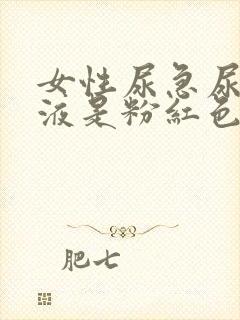 女性尿急尿
液是粉红色
肥七